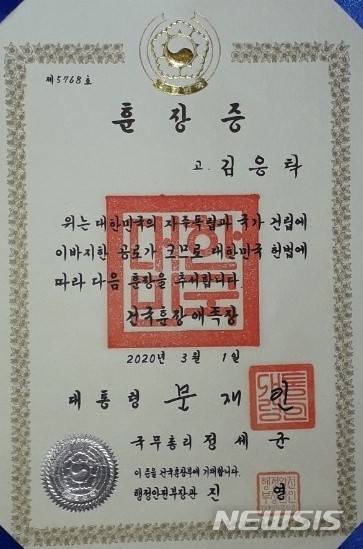 제5768호
훈장증
고. 김응탁
위는 대한민국의 자주독립과 국가 건립에
이바지한 공로가 크므로 대한민국 헌법에
따라 다음 훈장을 추서합니다.
건국훈장애족장
2020년 3월 1일
대통령 문재인
국무총리 정세균
이 증을 건국훈장부에 기재합니다.
행정안전부장관 진영
NEWSIS